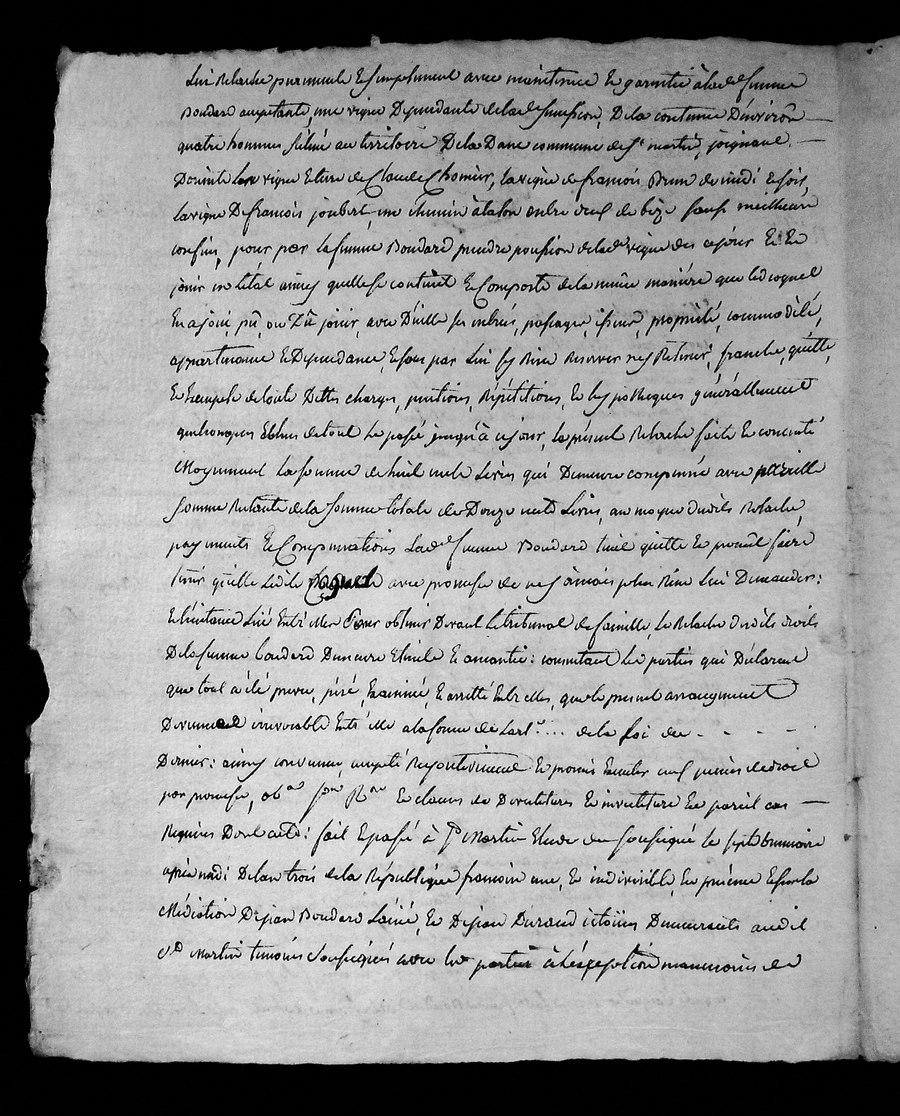 Lui Relache purement et simplement avec maintenue et garantie à lad.e femme
Boudard acceptante une vigne Dependante de lad.e succession, De la contenue D'environ
quatre hommes située au territoire De la Dane commune de S.t martin, joignant
Dorient la vigne et terre de Claude Chomier, la vigne de francois Brun de midi et soir,
la vigne De francois joubert, un chemin à talon entre deux de bize sauf meilleurs
confins, pour par la femme Boudard prendre possession de lad.e vigne des cejour Et En
jouir en l'état ainsy quelle se contient et Comporte de la même maniére que led coquet
En a joui, pû, ou Dû jouir, avec D'icelle ses entrées, passages, issues, propriété, commodité,
appartenance et Dependance, et sans par Lui sy Rien Reserver ny Retenir, franche, quitte,
et Exempte de toute Dettes charges, pentions, Répétitions, et hypotheques générallement
quelconques de tout le passé jusqu'à cejour, le present Relache faite et consenti
Moyennant la somme de huit cents Livres qui Demeure compensée avec pareille
somme Restante de la somme totale de Douze cents Livres, au moyen Desdits Relache,
payments et Compensations La de femme Boudard tient quitte et promet faire
tenir quitte ledit Coquet avec promesse de ne jamais plus Rien Lui Demander:
et l'instance Lié Entr'elles Pour obtenir Devant Le tribunal de famille, Le Relache Desdits droits
De la femme boudard Demeure Eteinte et amortie: consentant les parties qui Déclarent
que tout a été prevu, pésé, Examiné, et arretté Entr'elles, que le present arrangement
Devienne irrevocable Entr'elle a la forme de Lart.e .... de la loi du - - - - -
Dernier: ainsy convenu, accepté Respectivement et promis Executer aux peines de droit
par promesse, ob.on et clauses de Devetitures et investiture En pareil cas
Requises Dont acte: fait et passé à S.t Martin Etude du soussigné le sept brumaire
après midi De l'an trois de la République francoise une, et indivisible, En présence et sous la
Médiation De jean Boudard L'ainé, et De jean Durand citoiiens Demeurants audit
S.t Martin temoins soussignés avec les parties à l'exception neanmoins de